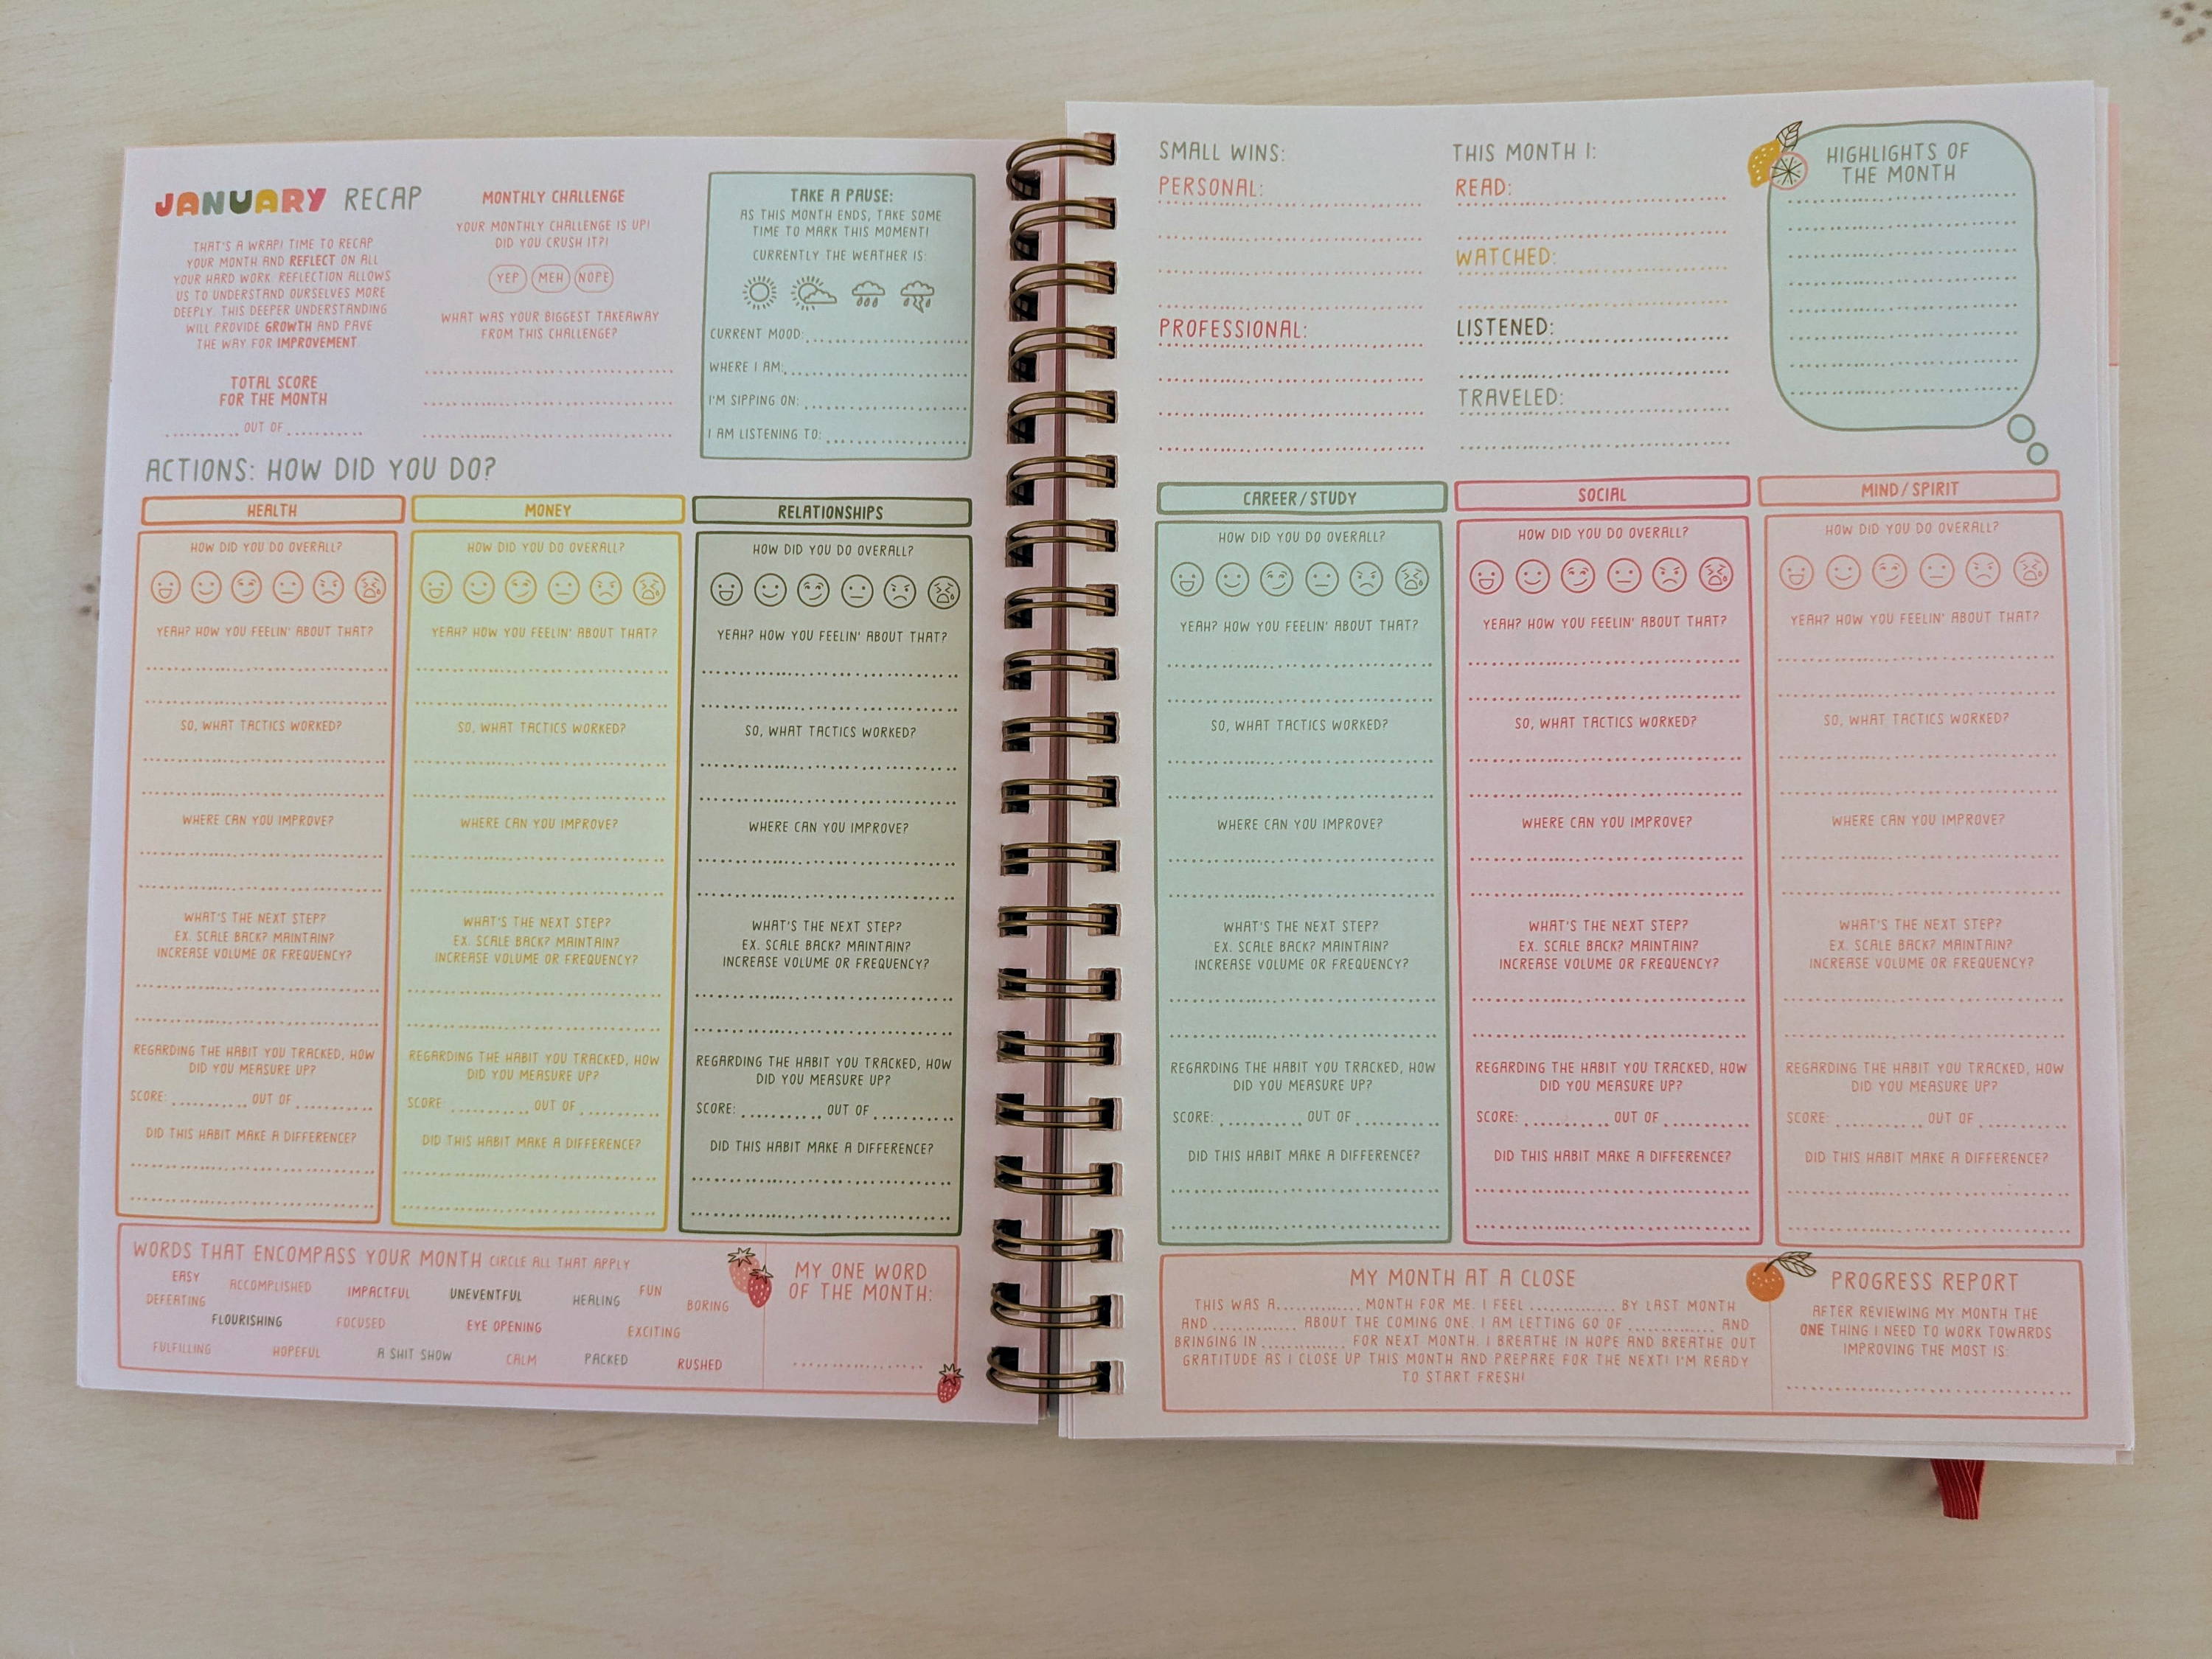 JANUARY RECAP
THAT'S A WRAP! TIME TO RECAP
YOUR MONTH AND REFLECT ON ALL
YOUR HARD WORK. REFLECTION ALLOWS
US TO UNDERSTAND OURSELVES MORE
DEEPLY. THIS DEEPER UNDERSTANDING
WILL PROVIDE GROWTH AND PAVE
THE WAY FOR IMPROVEMENT
TOTAL SCORE
FOR THE MONTH
OUT OF
MONTHLY CHALLENGE
YOUR MONTHLY CHALLENGE IS UP!
DID YOU CRUSH IT?!
YEP MEH NOPE
WHAT WAS YOUR BIGGEST TAKEAWAY
FROM THIS CHALLENGE?
TAKE A PAUSE:
AS THIS MONTH ENDS, TAKE SOME
TIME TO MARK THIS MOMENT!
CURRENTLY THE WEATHER IS:
CURRENT MOOD:
WHERE I AM:
I'M SIPPING ON:
I AM LISTENING TO:
ACTIONS: HOW DID YOU DO?
HEALTH
HOW DID YOU DO OVERALL?
YEAH? HOW YOU FEELIN' ABOUT THAT?
SO, WHAT TACTICS WORKED?
WHERE CAN YOU IMPROVE?
WHAT'S THE NEXT STEP?
EX. SCALE BACK? MAINTAIN?
INCREASE VOLUME OR FREQUENCY?
REGARDING THE HABIT YOU TRACKED, HOW
DID YOU MEASURE UP?
SCORE: OUT OF
DID THIS HABIT MAKE A DIFFERENCE?
MONEY
HOW DID YOU DO OVERALL?
YEAH? HOW YOU FEELIN' ABOUT THAT?
SO, WHAT TACTICS WORKED?
WHERE CAN YOU IMPROVE?
WHAT'S THE NEXT STEP?
EX. SCALE BACK? MAINTAIN?
INCREASE VOLUME OR FREQUENCY?
REGARDING THE HABIT YOU TRACKED, HOW
DID YOU MEASURE UP?
SCORE: OUT OF
DID THIS HABIT MAKE A DIFFERENCE?
RELATIONSHIPS
HOW DID YOU DO OVERALL?
YEAH? HOW YOU FEELIN' ABOUT THAT?
SO, WHAT TACTICS WORKED?
WHERE CAN YOU IMPROVE?
WHAT'S THE NEXT STEP?
EX. SCALE BACK? MAINTAIN?
INCREASE VOLUME OR FREQUENCY?
REGARDING THE HABIT YOU TRACKED, HOW
DID YOU MEASURE UP?
SCORE: OUT OF
DID THIS HABIT MAKE A DIFFERENCE?
WORDS THAT ENCOMPASS YOUR MONTH CIRCLE ALL THAT APPLY
EASY ACCOMPLISHED IMPACTFUL UNEVENTFUL HEALING FUN
DEFEATING BORING
FLOURISHING FOCUSED EYE OPENING EXCITING
FULFILLING HOPEFUL A SHIT SHOW CALM PACKED RUSHED
MY ONE WORD
OF THE MONTH:
SMALL WINS:
PERSONAL:
PROFESSIONAL:
THIS MONTH I:
READ:
WATCHED:
LISTENED:
TRAVELED:
HIGHLIGHTS OF
THE MONTH
CAREER/STUDY
HOW DID YOU DO OVERALL?
YEAH? HOW YOU FEELIN' ABOUT THAT?
SO, WHAT TACTICS WORKED?
WHERE CAN YOU IMPROVE?
WHAT'S THE NEXT STEP?
EX. SCALE BACK? MAINTAIN?
INCREASE VOLUME OR FREQUENCY?
REGARDING THE HABIT YOU TRACKED, HOW
DID YOU MEASURE UP?
SCORE: OUT OF
DID THIS HABIT MAKE A DIFFERENCE?
SOCIAL
HOW DID YOU DO OVERALL?
YEAH? HOW YOU FEELIN' ABOUT THAT?
SO, WHAT TACTICS WORKED?
WHERE CAN YOU IMPROVE?
WHAT'S THE NEXT STEP?
EX. SCALE BACK? MAINTAIN?
INCREASE VOLUME OR FREQUENCY?
REGARDING THE HABIT YOU TRACKED, HOW
DID YOU MEASURE UP?
SCORE: OUT OF
DID THIS HABIT MAKE A DIFFERENCE?
MIND/SPIRIT
HOW DID YOU DO OVERALL?
YEAH? HOW YOU FEELIN' ABOUT THAT?
SO, WHAT TACTICS WORKED?
WHERE CAN YOU IMPROVE?
WHAT'S THE NEXT STEP?
EX. SCALE BACK? MAINTAIN?
INCREASE VOLUME OR FREQUENCY?
REGARDING THE HABIT YOU TRACKED, HOW
DID YOU MEASURE UP?
SCORE: OUT OF
DID THIS HABIT MAKE A DIFFERENCE?
MY MONTH AT A CLOSE
THIS WAS A.............. MONTH FOR ME. I FEEL .............. BY LAST MONTH
AND .............. ABOUT THE COMING ONE. I AM LETTING GO OF .............. AND
BRINGING IN .............. FOR NEXT MONTH. I BREATHE IN HOPE AND BREATHE OUT
GRATITUDE AS I CLOSE UP THIS MONTH AND PREPARE FOR THE NEXT! I'M READY
TO START FRESH!
PROGRESS REPORT
AFTER REVIEWING MY MONTH THE
ONE THING I NEED TO WORK TOWARDS
IMPROVING THE MOST IS: